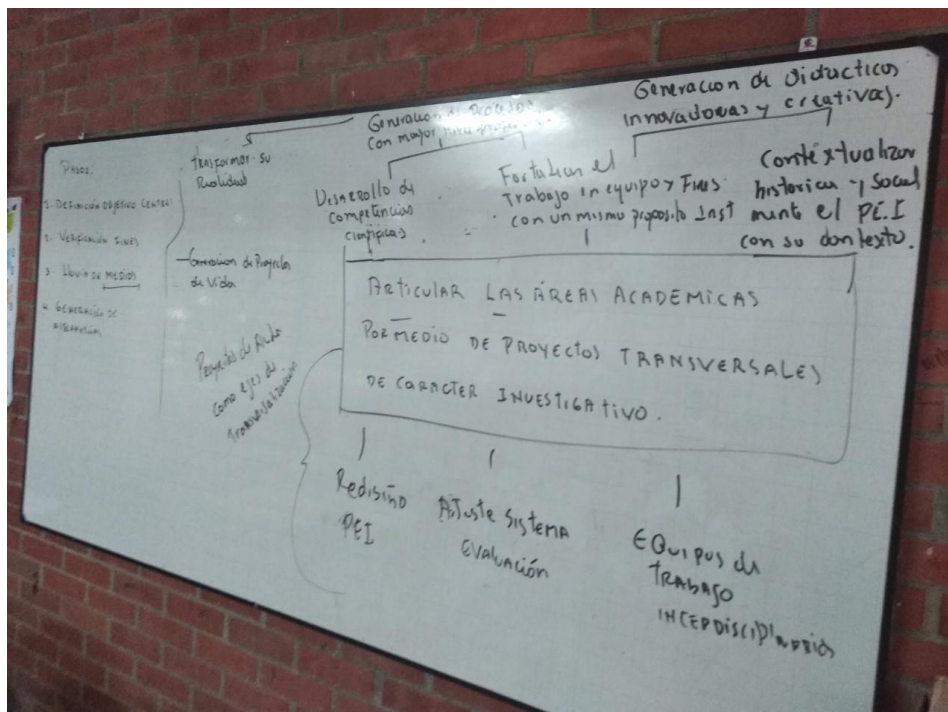 Pasos:
1. DEFINICIÓN OBJETIVO CENTRAL
2. VERIFICACIÓN FINES
3. LLUVIA DE MEDIOS
4. GENERACIÓN DE
transformar su
Realidad
Generación de Proyectos
de Vida
Proyectos de
como ejes de
Transversalización
Generación de Procesos
con mayor
Desarrollo de
Competencias
Científicas
Fortalecer el
Trabajo en equipo y Fines
con un mismo proposito Inst
Generacion de Didacticos
innovadoras y creativas.
Contextualizar
historica y Social
mente el P.E.I
con su contexto.
ARTICULAR LAS ÁREAS ACADEMICAS
POR MEDIO DE PROYECTOS TRANSVERSALES
DE CARACTER INVESTIGATIVO.
Rediseño
PEI
AJUSTE SISTEMA
EVALUACIÓN
EQUIPOS de
TRABAJO
INTERDISCIPLINARIOS